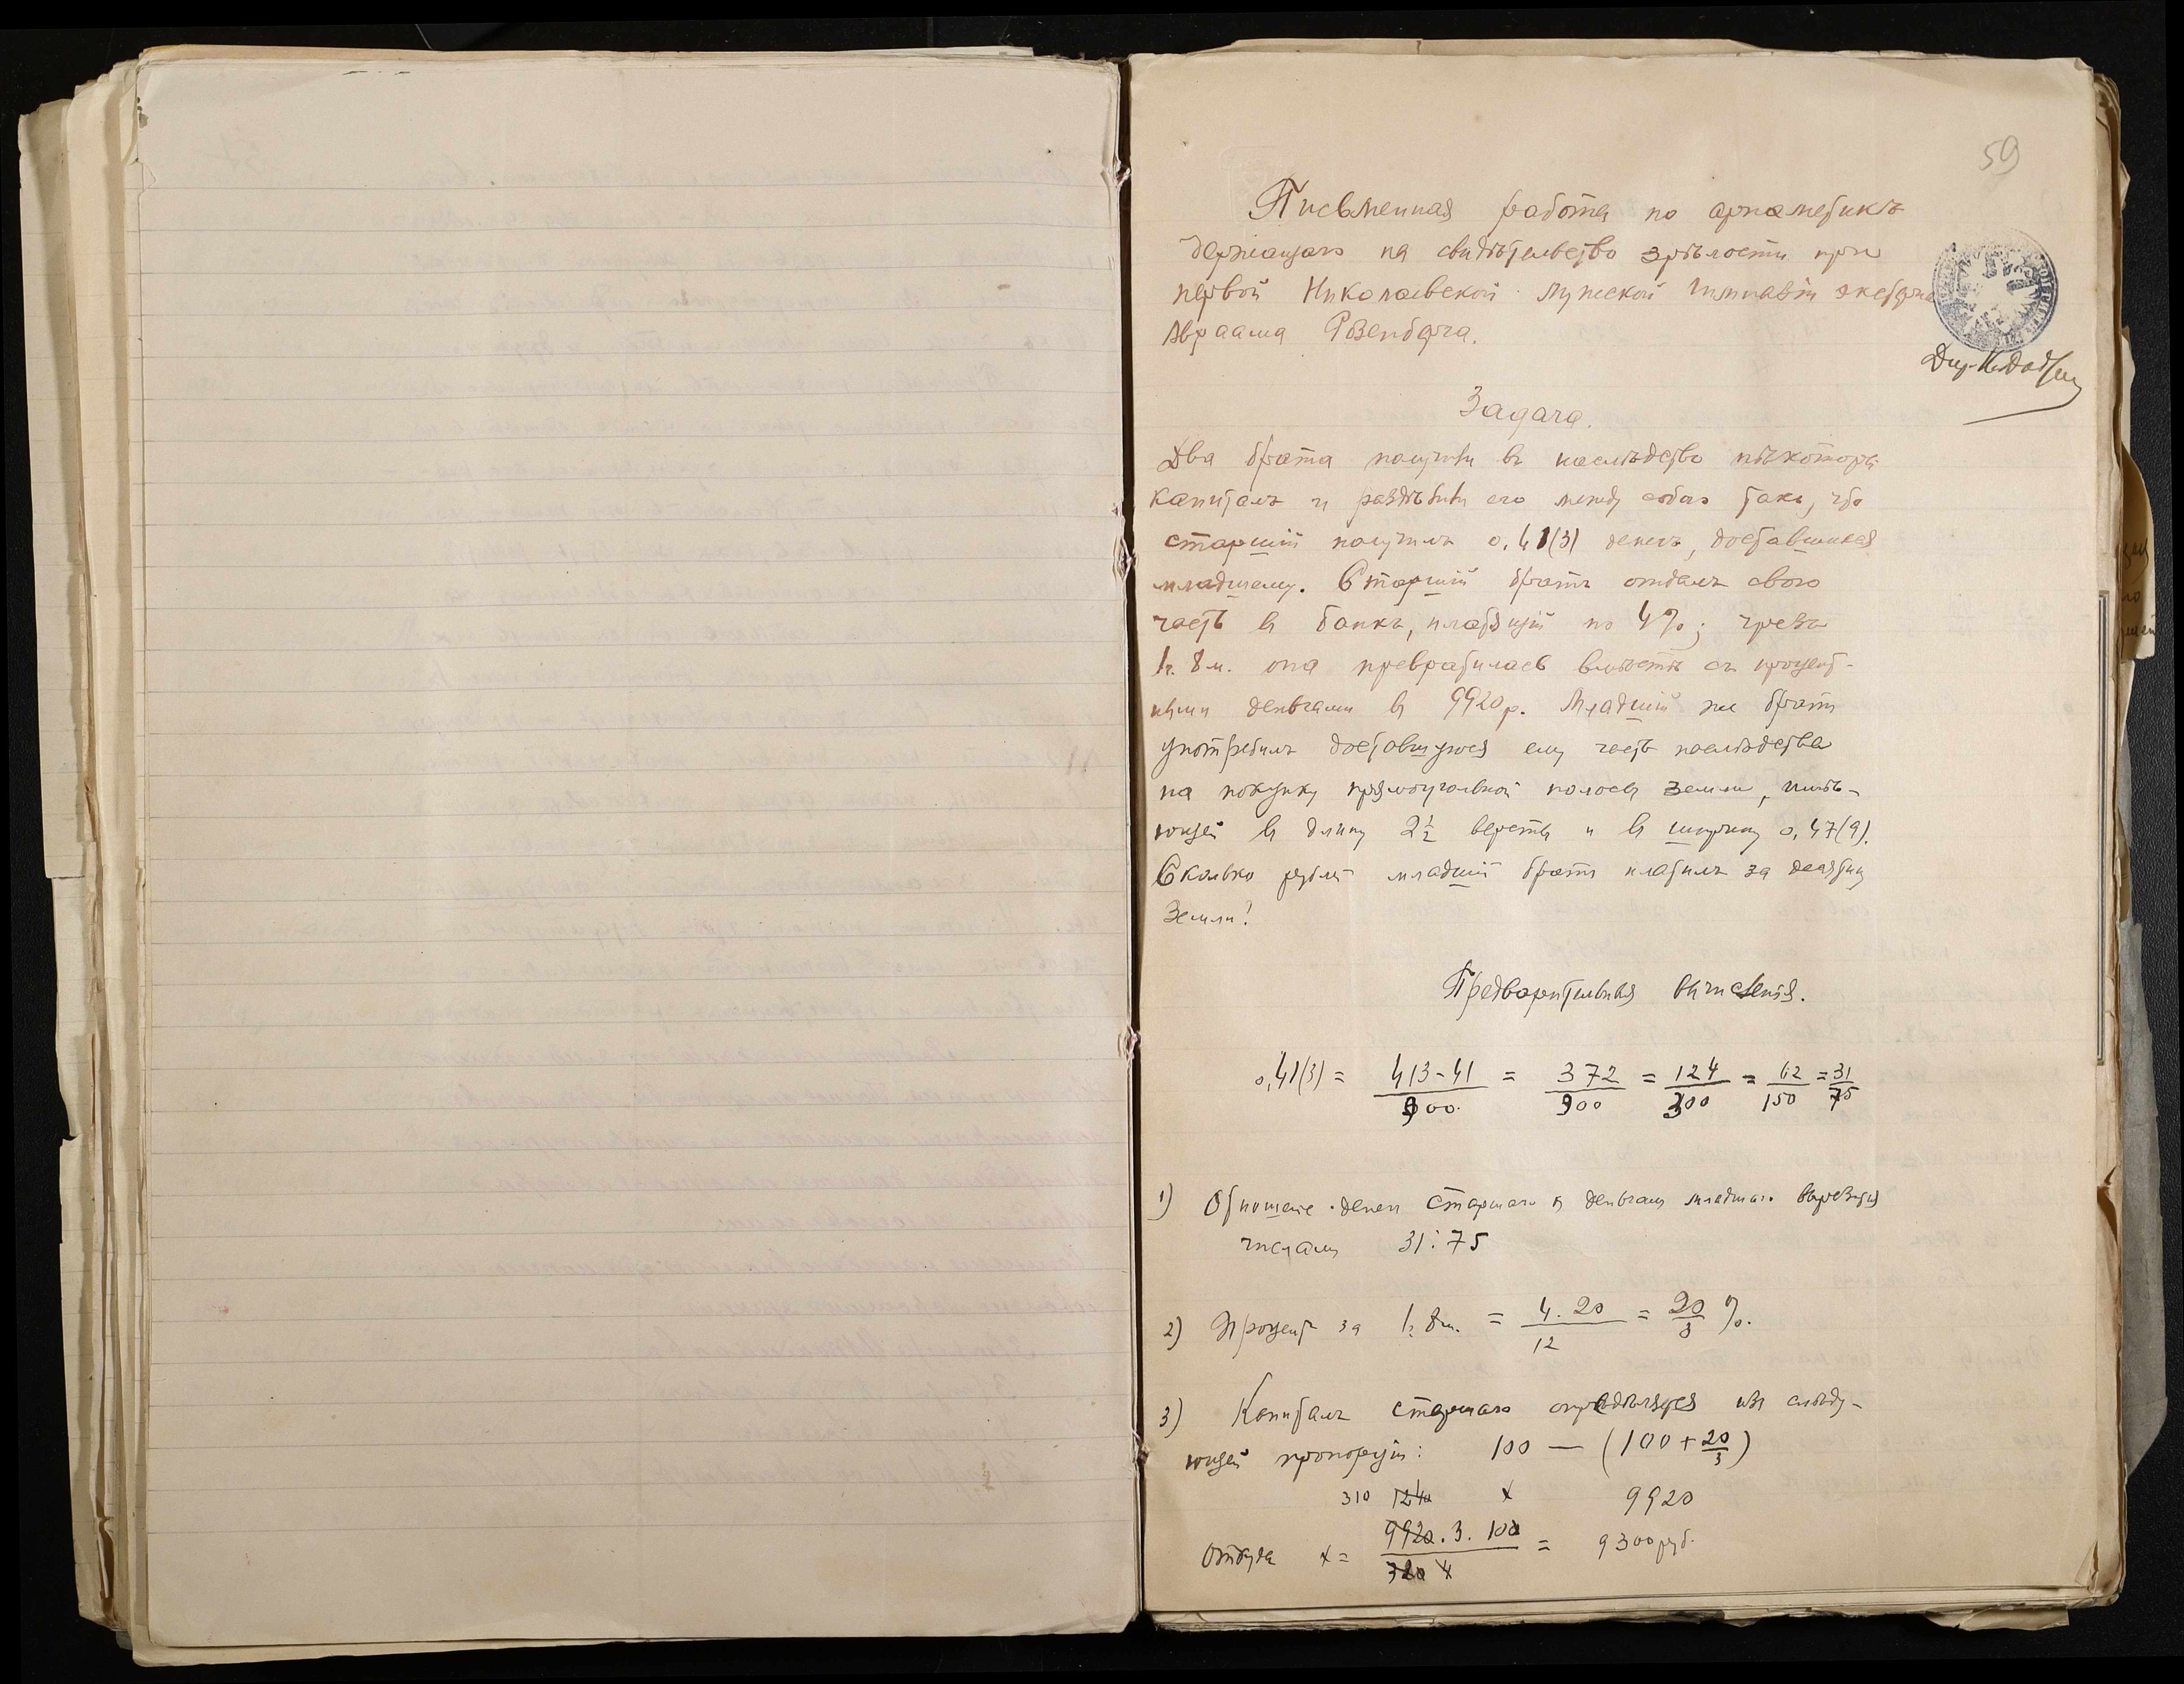 59
Письменная работа по арифметикѣ
держащаго на свидѣтельство зрѣлости при
первой Николаевской мужской гимназіи экстерна
Авраама Розенберга.
Задача.
Два брата получили въ наслѣдство нѣкоторый
капиталъ и раздѣлили его между собою такъ, что
старшій получилъ 0,41(3) денегъ, доставшихся
младшему. Старшій братъ отдалъ свою
часть въ банкъ, платящій по 4%; чрезъ
1г. 8м. она превратилась вмѣстѣ съ процент-
ными деньгами въ 9920р. Младшій же братъ
употребилъ доставшуюся ему часть наслѣдства
на покупку прямоугольной полосы земли, имѣ-
ющей въ длину 2½ версты и въ ширину 0,47(9).
Сколько рублей младшій братъ платилъ за десятину
земли?
Предварительныя вычисленія.
0,41(3) = 413-41/900 = 372/900 = 124/300 = 62/150 = 31/75
1) Отношеніе денегъ старшаго къ деньгамъ младшаго выразится
числами 31:75
2) Процентъ за 1г. 8м. = 4.20/12 = 20/3 %.
3) Капиталъ старшаго опредѣляется изъ слѣду-
ющей пропорціи: 100 — (100 + 20/3)
310 1240 x 9920
Откуда x = 9920.3.100/320 4 = 9300 руб.